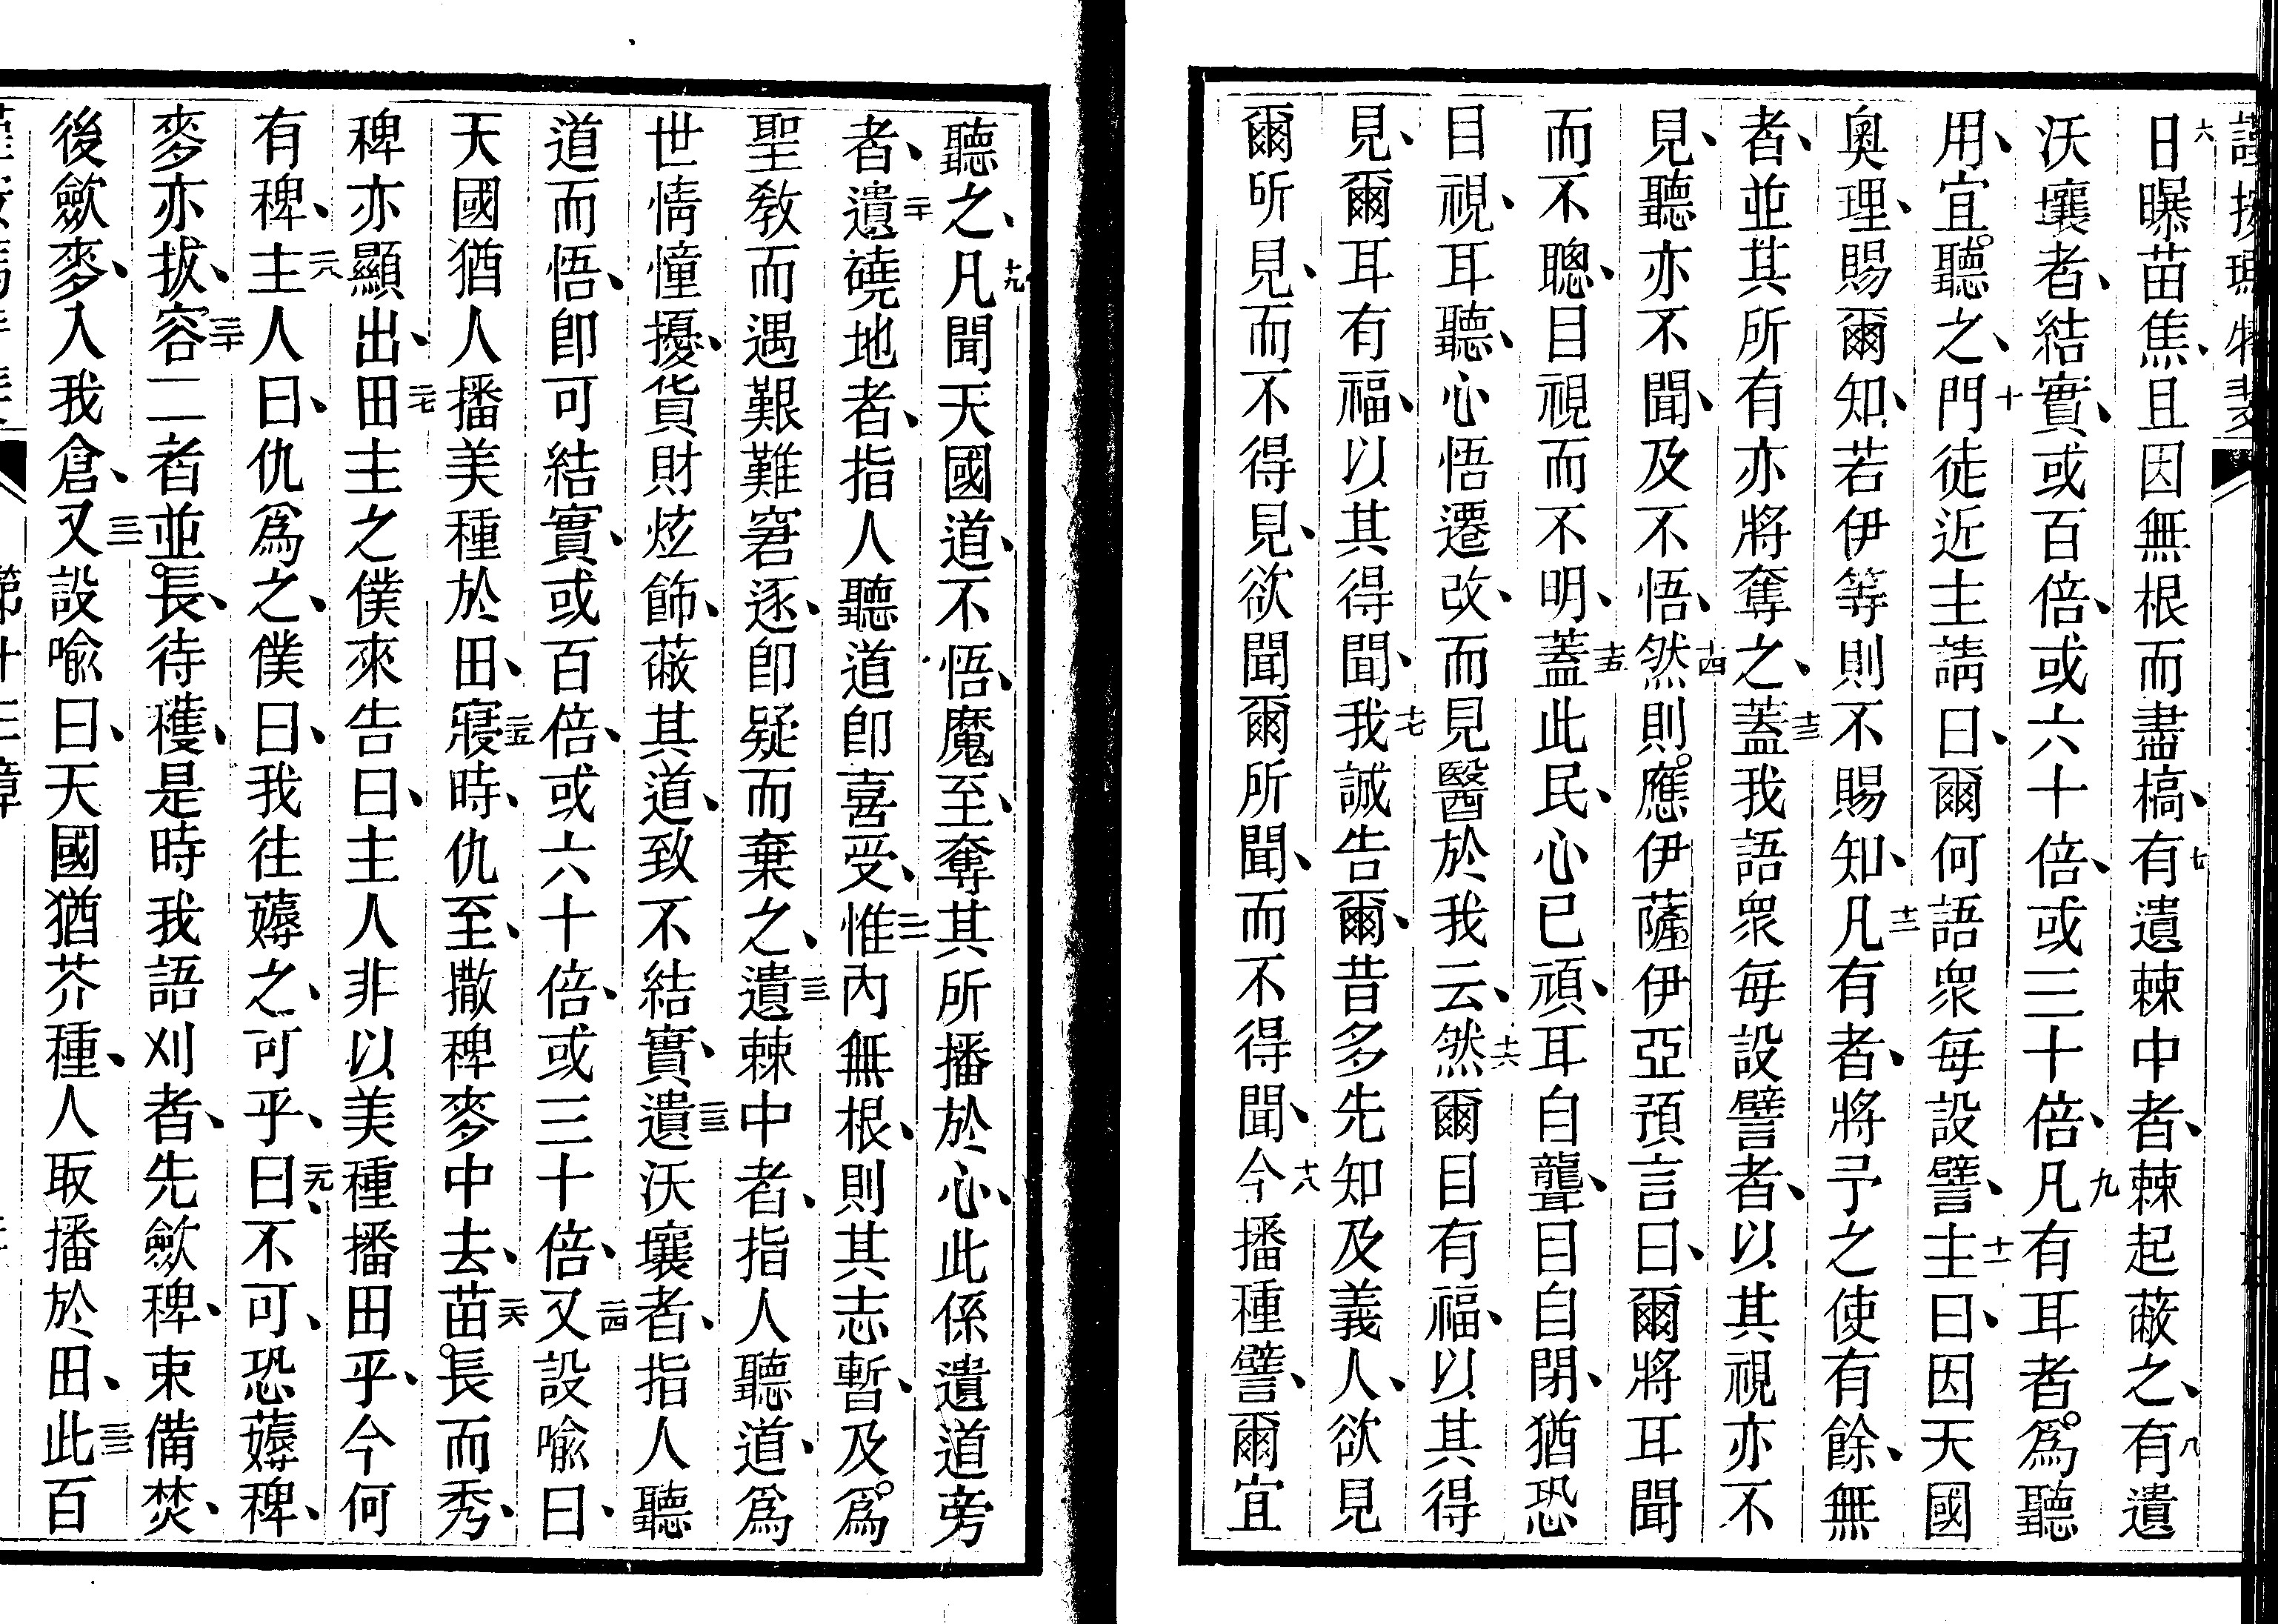 六日曝苗焦、且因無根而盡槁、七有遺棘中者、棘起蔽之、八有遺
沃壤者、結實、或百倍、或六十倍、或三十倍、九凡有耳者。爲聽
用、宜。聽之、十門徒近主請曰、爾何語衆每設譬、十一主曰、因天國
奧理、賜爾知、若伊等則不賜知、十二凡有者、將予之使有餘、無
者、並其所有亦將奪之、十三蓋我語衆每設譬者、以其視亦不
見、聽亦不聞、及不悟、十四然則。應伊薩。伊亞預言曰、爾將耳聞
而不聰、目視而不明、十五蓋此民、心已頑、耳自聾、目自閉、猶恐
目視、耳聽、心悟遷改、而見醫於我云、十六然爾目有福、以其得
見、爾耳有福、以其得聞、十七我誠告爾、昔多先知及義人、欲見
爾所見、而不得見、欲聞爾所聞、而不得聞、十八今播種譬、爾宜
聽之、十九凡聞天國道、不悟、魔至、奪其所播於心、此係遺道旁
者、二十遺磽地者、指人聽道卽喜受、二一惟內無根、則其志暫、及。爲
聖教而遇艱難窘逐、卽疑而棄之、二二遺棘中者、指人聽道、爲
世情憧擾、貨財炫飾、蔽其道、致不結實、二三遺沃壤者、指人聽
道而悟、卽可結實、或百倍、或六十倍、或三十倍、二四又設喩曰、
天國猶人播美種於田、二五寢時、仇至、撒稗麥中去、二六苗。長而秀、
稗亦顯出、二七田主之僕來告曰、主人非以美種播田乎、今何
有稗、二八主人曰、仇爲之、僕曰、我往薅之、可乎、二九曰、不可、恐薅稗、
麥亦拔、三十容二者並。長、待穫、是時我語刈者、先歛稗、束備焚、
後歛麥、入我倉、三一又設喩曰、天國猶芥種、人取播於田、三二此百